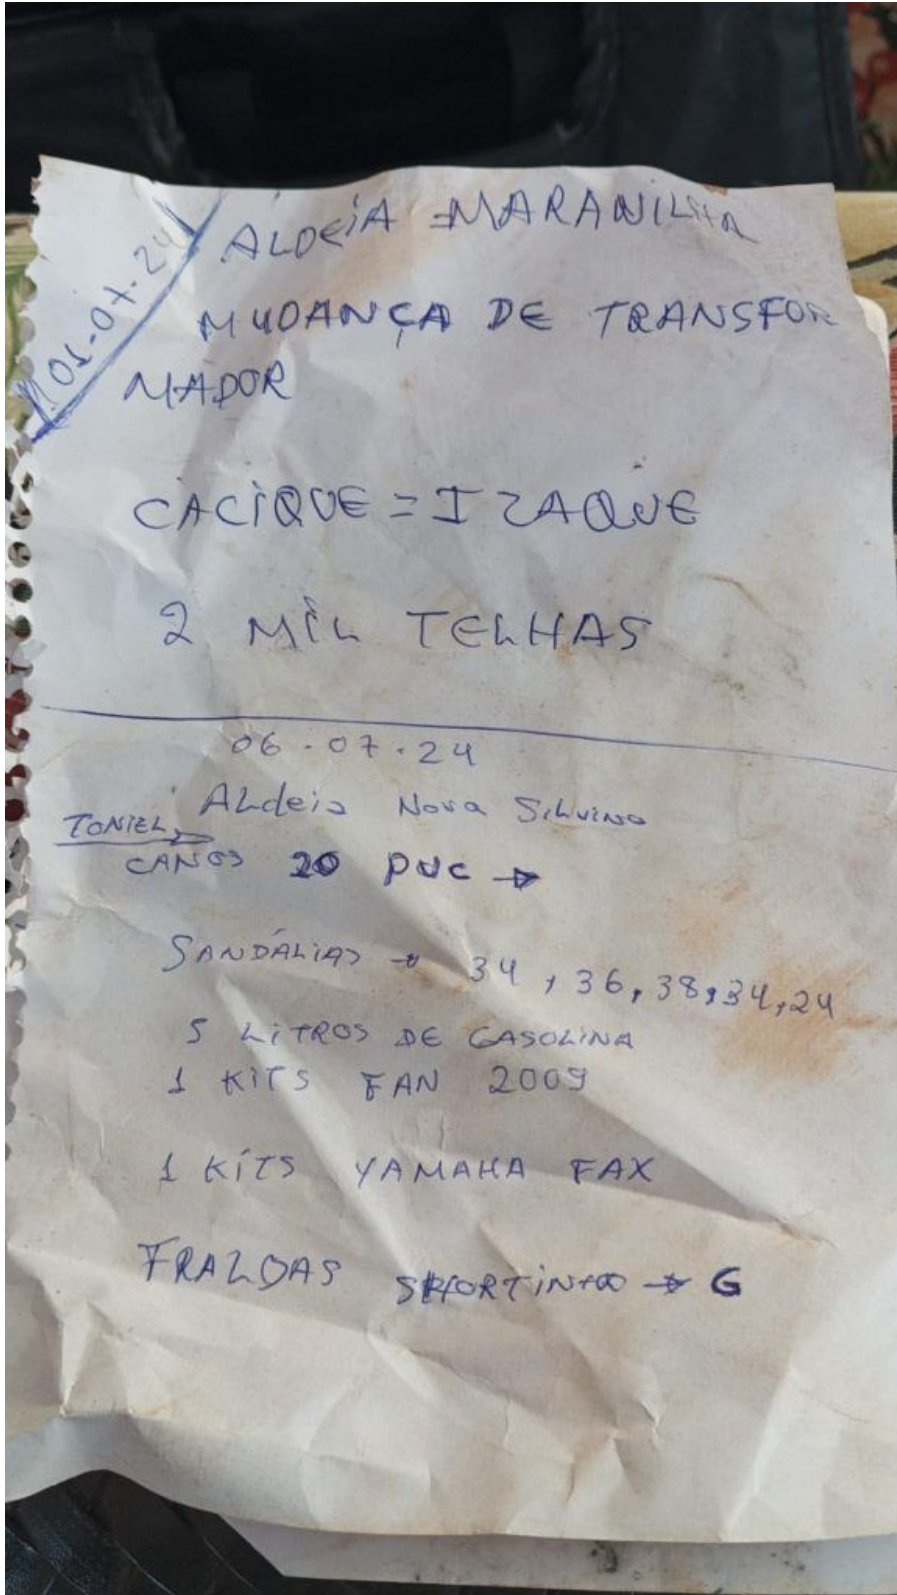 01-07-24
ALDEIA =MARANILHA
MUDANÇA DE TRANSFOR
MADOR
CACIQUE = IZAQUE
2 MIL TELHAS
06-07.24
ALdeia Nova SiLvino
TONIEL
CANOS 20 PVC →
SANDÁLIAS → 34, 36, 38, 34, 24
5 LITROS DE GASOLINA
1 KITS FAN 2009
1 KITS YAMAHA FAX
FRALDAS SHORTINHO → G